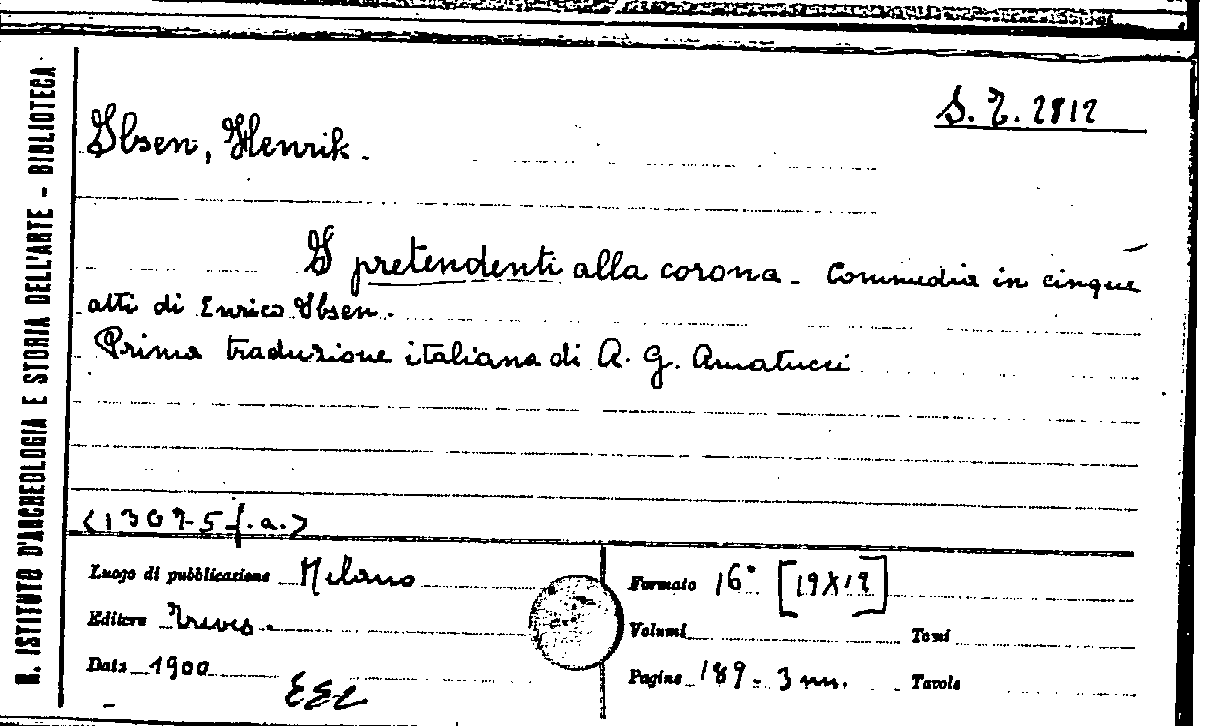 R. ISTITUTO D'ARCHEOLOGIA E STORIA DELL'ARTE - BIBLIOTECA
S. Z. 2812
Ibsen, Henrik.
I pretendenti alla corona - Commedia in cinque
atti di Enrico Ibsen.
Prima traduzione italiana di A. G. Amatucci
<1307-5 f.a.>
Luogo di pubblicazione Milano
Editore Treves.
Data 1900
Formato 16° [19X12]
Volumi Tomi
Pagine 189 - 3 nn. Tavole